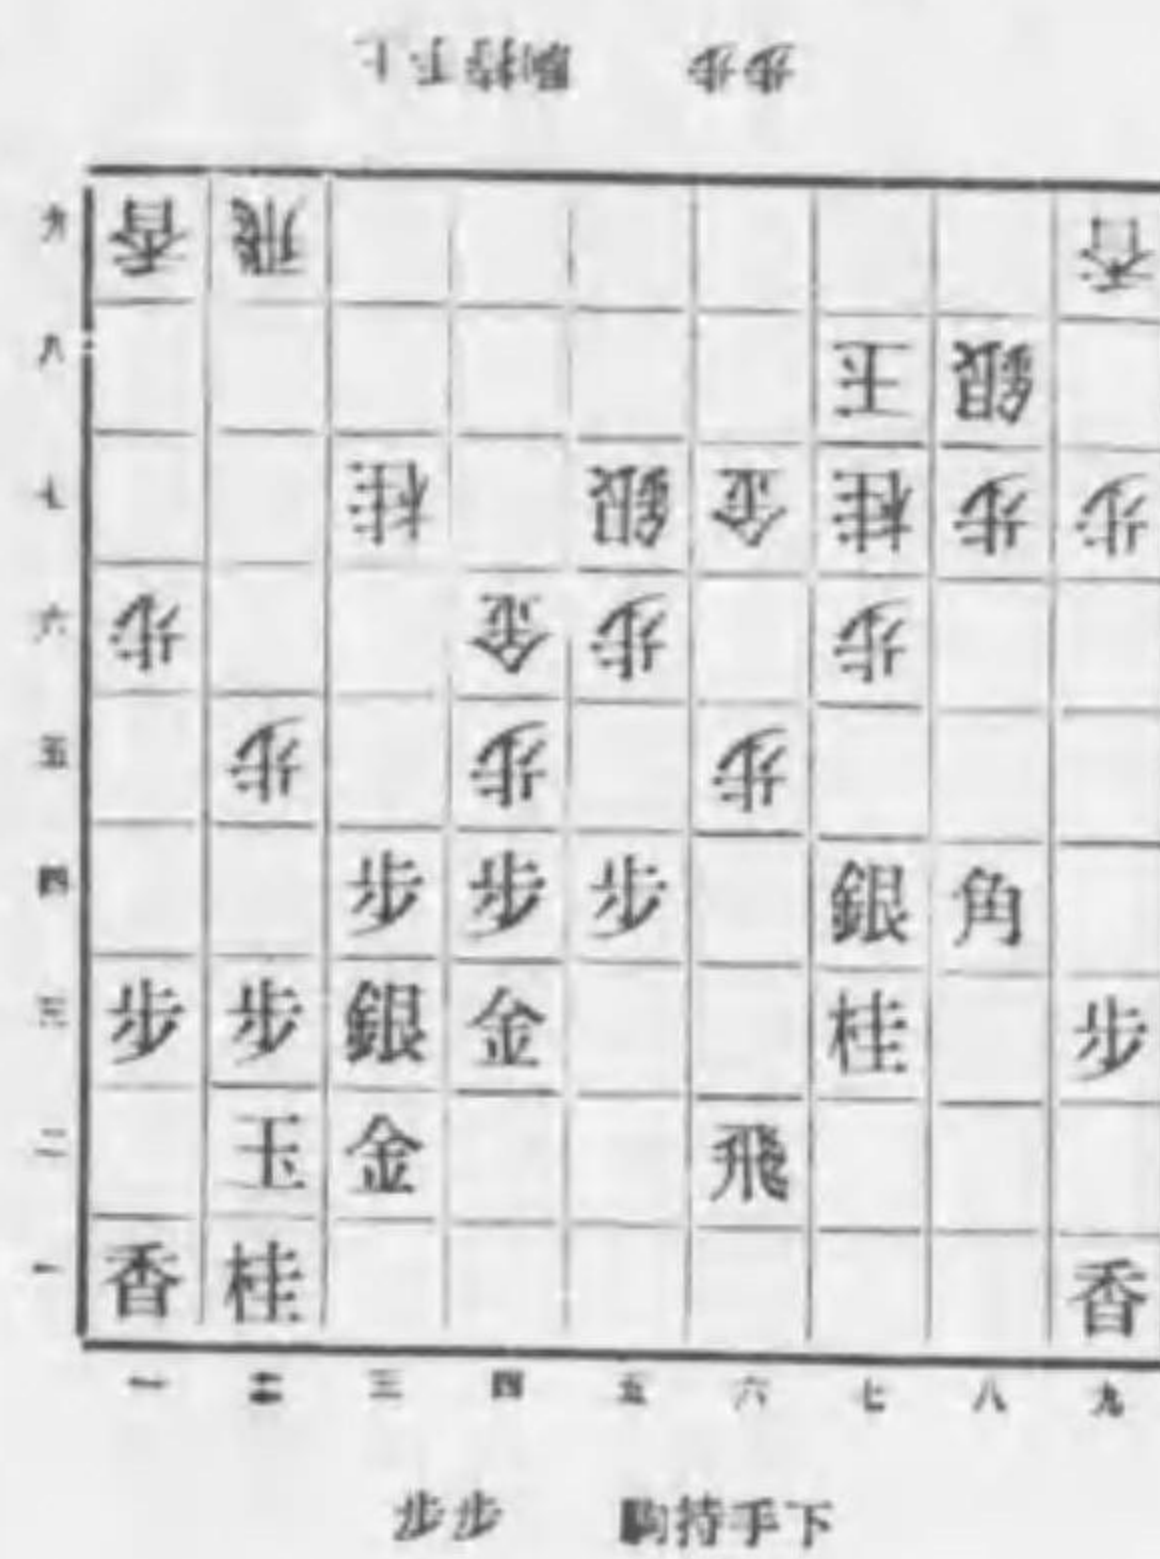 上手持駒 步步
九 香 飛 香
八 玉 銀
七 桂 銀 金 桂 步 步
六 步 金 步 步
五 步 步 步
四 步 步 步 銀 角
三 步 步 銀 金 桂 步
二 玉 金 飛
一 香 桂 香
一 二 三 四 五 六 七 八 九
下手持駒 步步